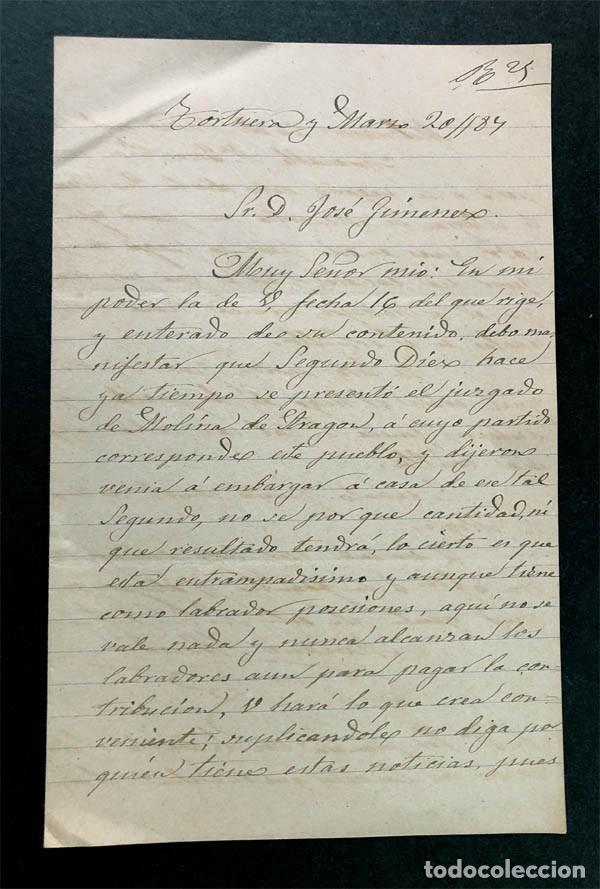 R 25
Tortuera y Marzo 20//87
Sr. D. José Gimenez.
Muy Señor mio: En mi
poder la de V, fecha 16 del que rige,
y enterado de su contenido, debo ma-
nifestar que Segundo Diez hace
ya tiempo se presentó el juzgado
de Molina de Aragon, á cuyo partido
corresponde este pueblo, y dijeron
venia á embargar á casa de ese tal
Segundo, no se por que cantidad, ni
que resultado tendrá, lo cierto es que
está entrampadisimo y aunque tiene
como labrador posesiones, aquí no se
vale nada y nunca alcanzan los
labradores aun para pagar la con-
tribucion, V hará lo que crea con-
veniente; suplicandole no diga po
quién tiene estas noticias, pues
todocoleccion